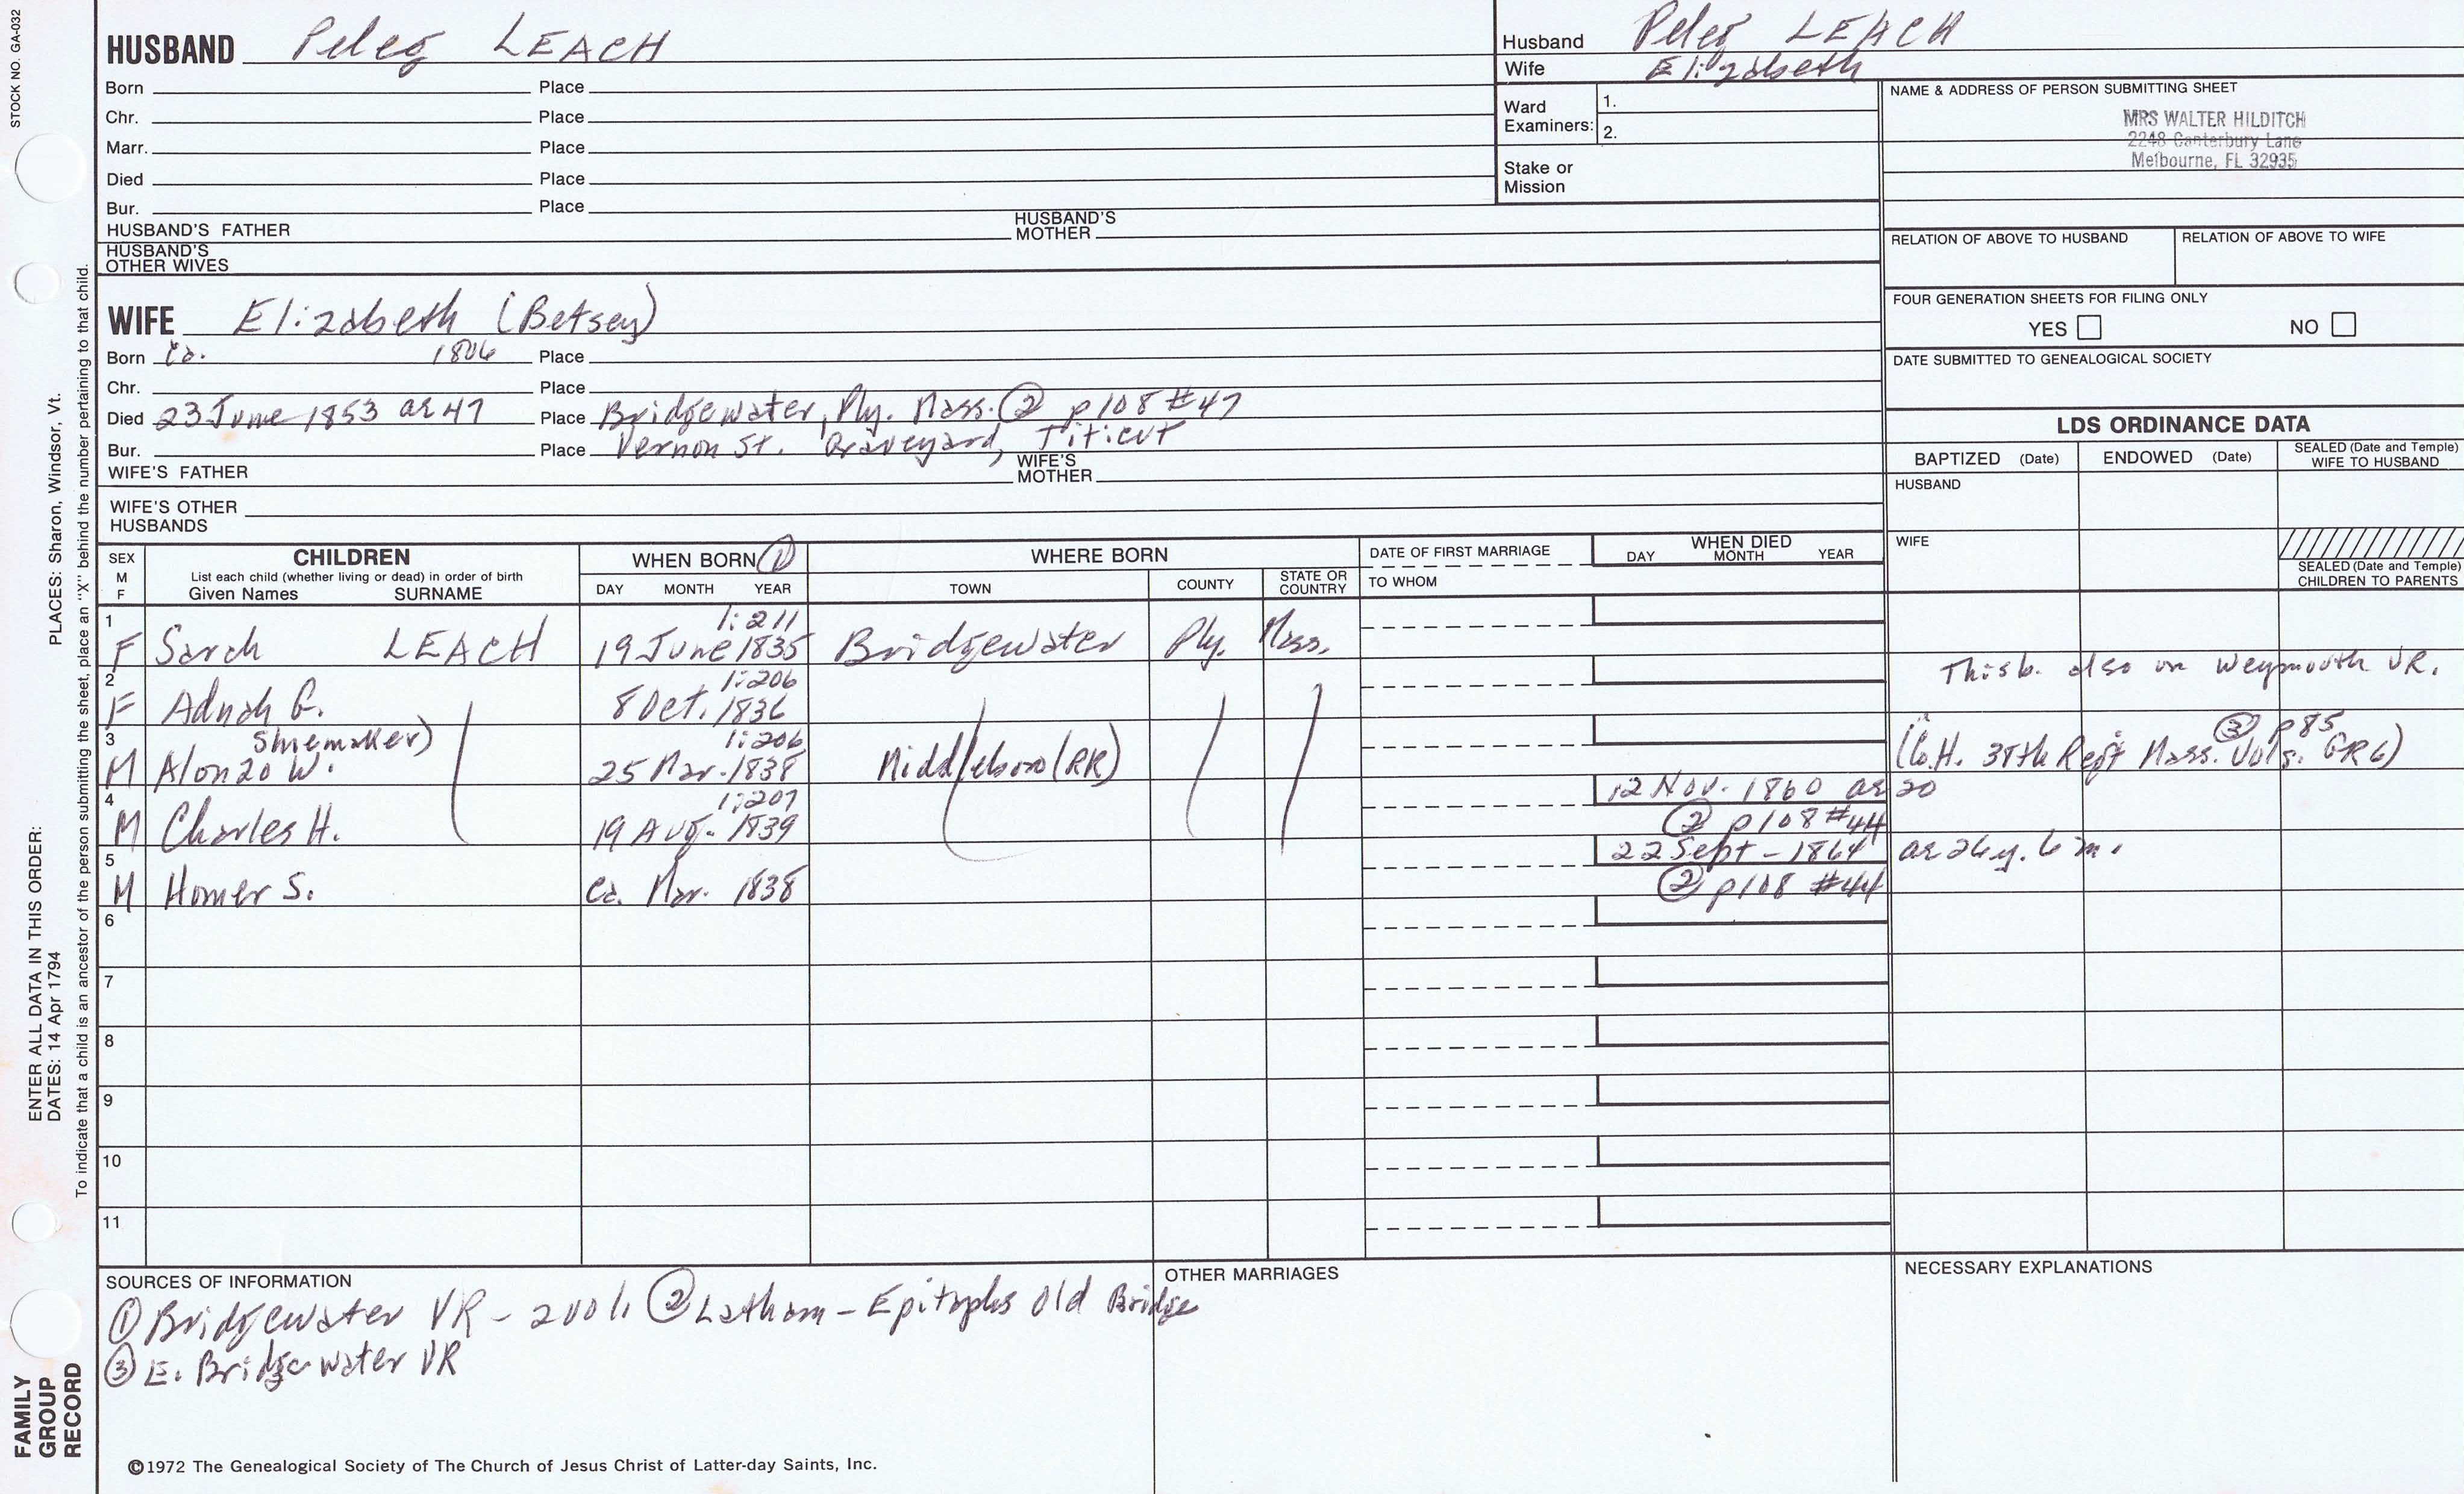 STOCK NO. GA-032
HUSBAND Peleg LEACH
Husband Peleg LEACH
Wife Elizabeth
Born Place
Chr. Place
Marr. Place
Died Place
Bur. Place
Ward Examiners: 1.
2.
Stake or Mission
NAME & ADDRESS OF PERSON SUBMITTING SHEET
MRS WALTER HILDITCH
2248 Canterbury Lane
Melbourne, FL 32935
HUSBAND'S FATHER HUSBAND'S MOTHER
HUSBAND'S OTHER WIVES
RELATION OF ABOVE TO HUSBAND RELATION OF ABOVE TO WIFE
FOUR GENERATION SHEETS FOR FILING ONLY
YES NO
DATE SUBMITTED TO GENEALOGICAL SOCIETY
WIFE Elizabeth (Betsey)
Born ca. 1806 Place
Chr. Place
Died 23 June 1853 ae 47 Place Bridgewater, Ply. Mass. ② p108 #47
Bur. Place Vernon St. Graveyard, Titicut
WIFE'S FATHER WIFE'S MOTHER
WIFE'S OTHER HUSBANDS
LDS ORDINANCE DATA
BAPTIZED (Date) ENDOWED (Date) SEALED (Date and Temple) WIFE TO HUSBAND
HUSBAND
WIFE
SEALED (Date and Temple) CHILDREN TO PARENTS
SEX M F
CHILDREN
List each child (whether living or dead) in order of birth
Given Names SURNAME
WHEN BORN ①
DAY MONTH YEAR
WHERE BORN
TOWN COUNTY STATE OR COUNTRY
DATE OF FIRST MARRIAGE
TO WHOM
WHEN DIED
DAY MONTH YEAR
1 1:211
F Sarah LEACH 19 June 1835 Bridgewater Ply. Mass.
2 1:206 This b. also in Weymouth VR.
F Adnah G. 8 Oct. 1836
3 Shoemaker) 1:206 ③ p85
M Alonzo W. 25 Mar. 1838 Middleboro (RR) (Co.H. 38th Regt Mass. Vols. GR6)
4 1:207 12 Nov. 1860 ae 20
M Charles H. 19 Aug. 1839 ② p108 #44
5 22 Sept - 1864 ae 26y. 6 m.
M Homer S. ca. Mar. 1838 ② p108 #44
6
7
8
9
10
11
SOURCES OF INFORMATION
① Bridgewater VR - 2 vol. ② Latham - Epitaphs Old Bridge
③ E. Bridgewater VR
OTHER MARRIAGES
NECESSARY EXPLANATIONS
©1972 The Genealogical Society of The Church of Jesus Christ of Latter-day Saints, Inc.
FAMILY GROUP RECORD
ENTER ALL DATA IN THIS ORDER:
DATES: 14 Apr 1794 PLACES: Sharon, Windsor, Vt.
To indicate that a child is an ancestor of the person submitting the sheet, place an "X" behind the number pertaining to that child.